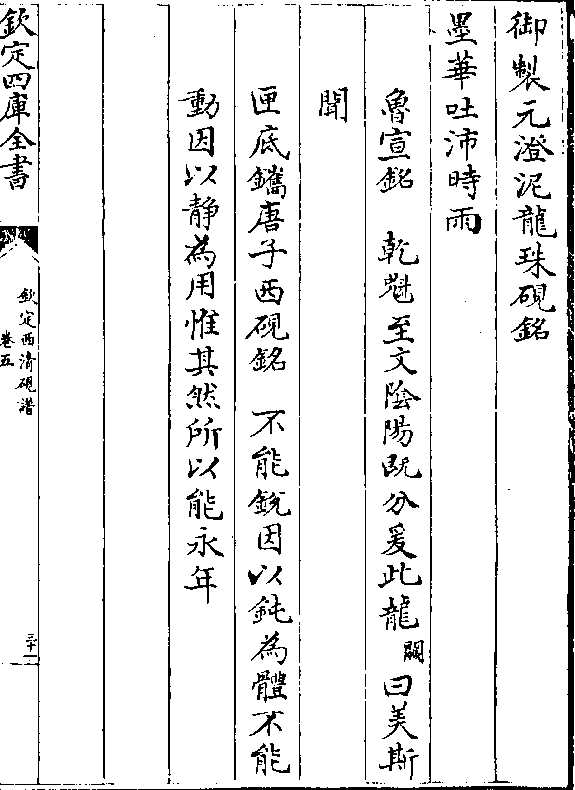 御製元澄泥龍珠硯銘
墨華吐沛時雨
魯宣銘　乾㷱至文陰陽既分爰此龍闕曰美斯
聞
匣底鐫唐子西硯銘　不能銳因以鈍為體不能
動因以靜為用惟其然所以能永年
欽定四庫全書
欽定西清硯譜
卷五
三十一